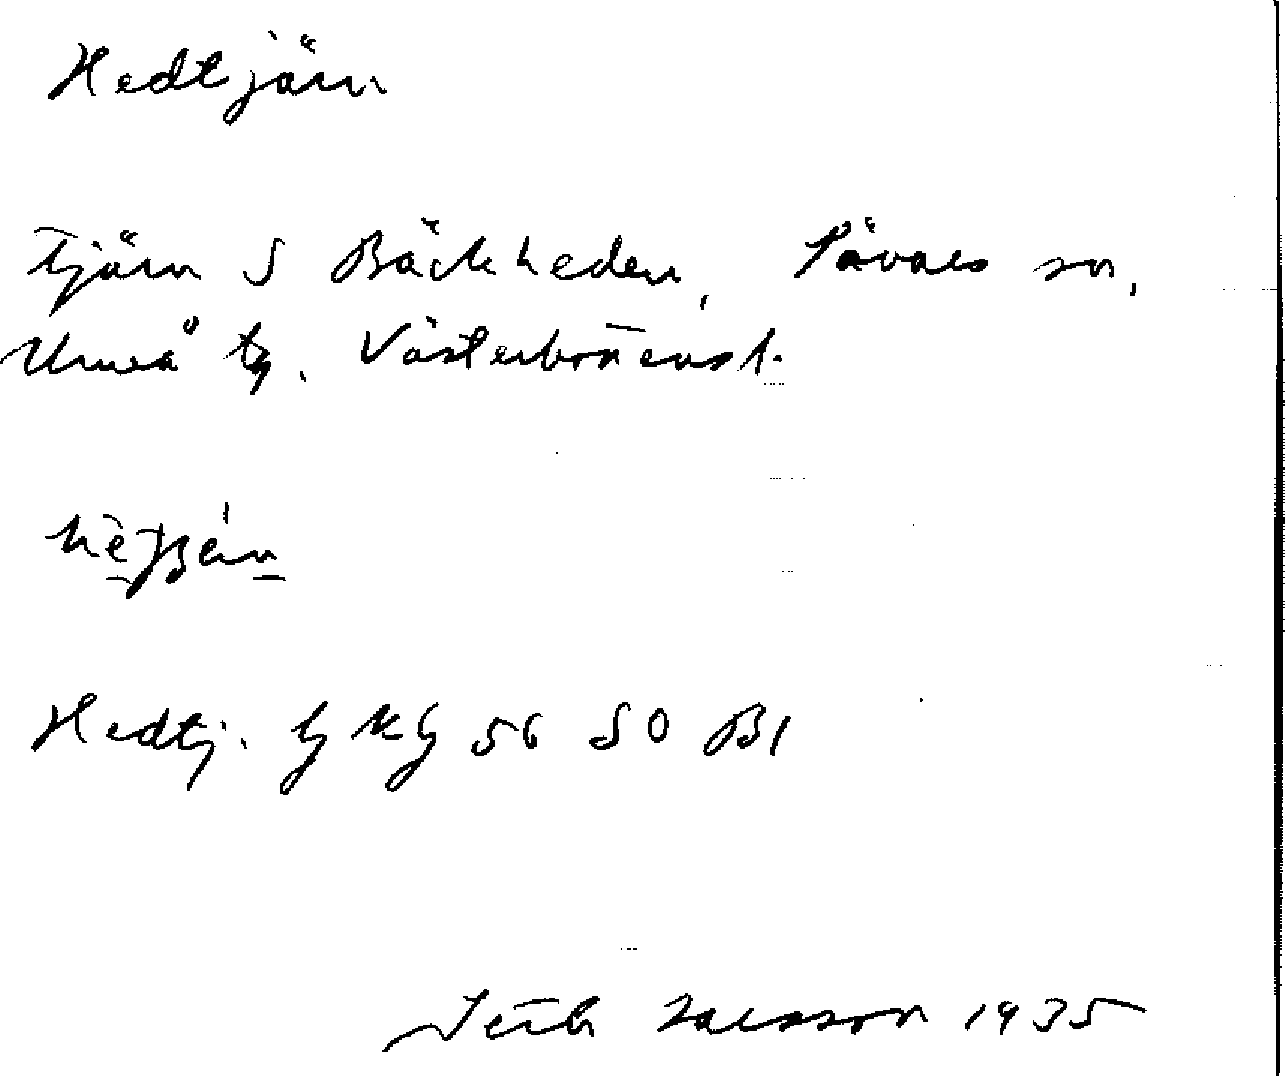 Hedtjärn
Tjärn S Bäckheden, Sävars sn,
Umeå tg. Västerbottens l.
Hedtj. GKG 56 SO B1
Larsson 1935